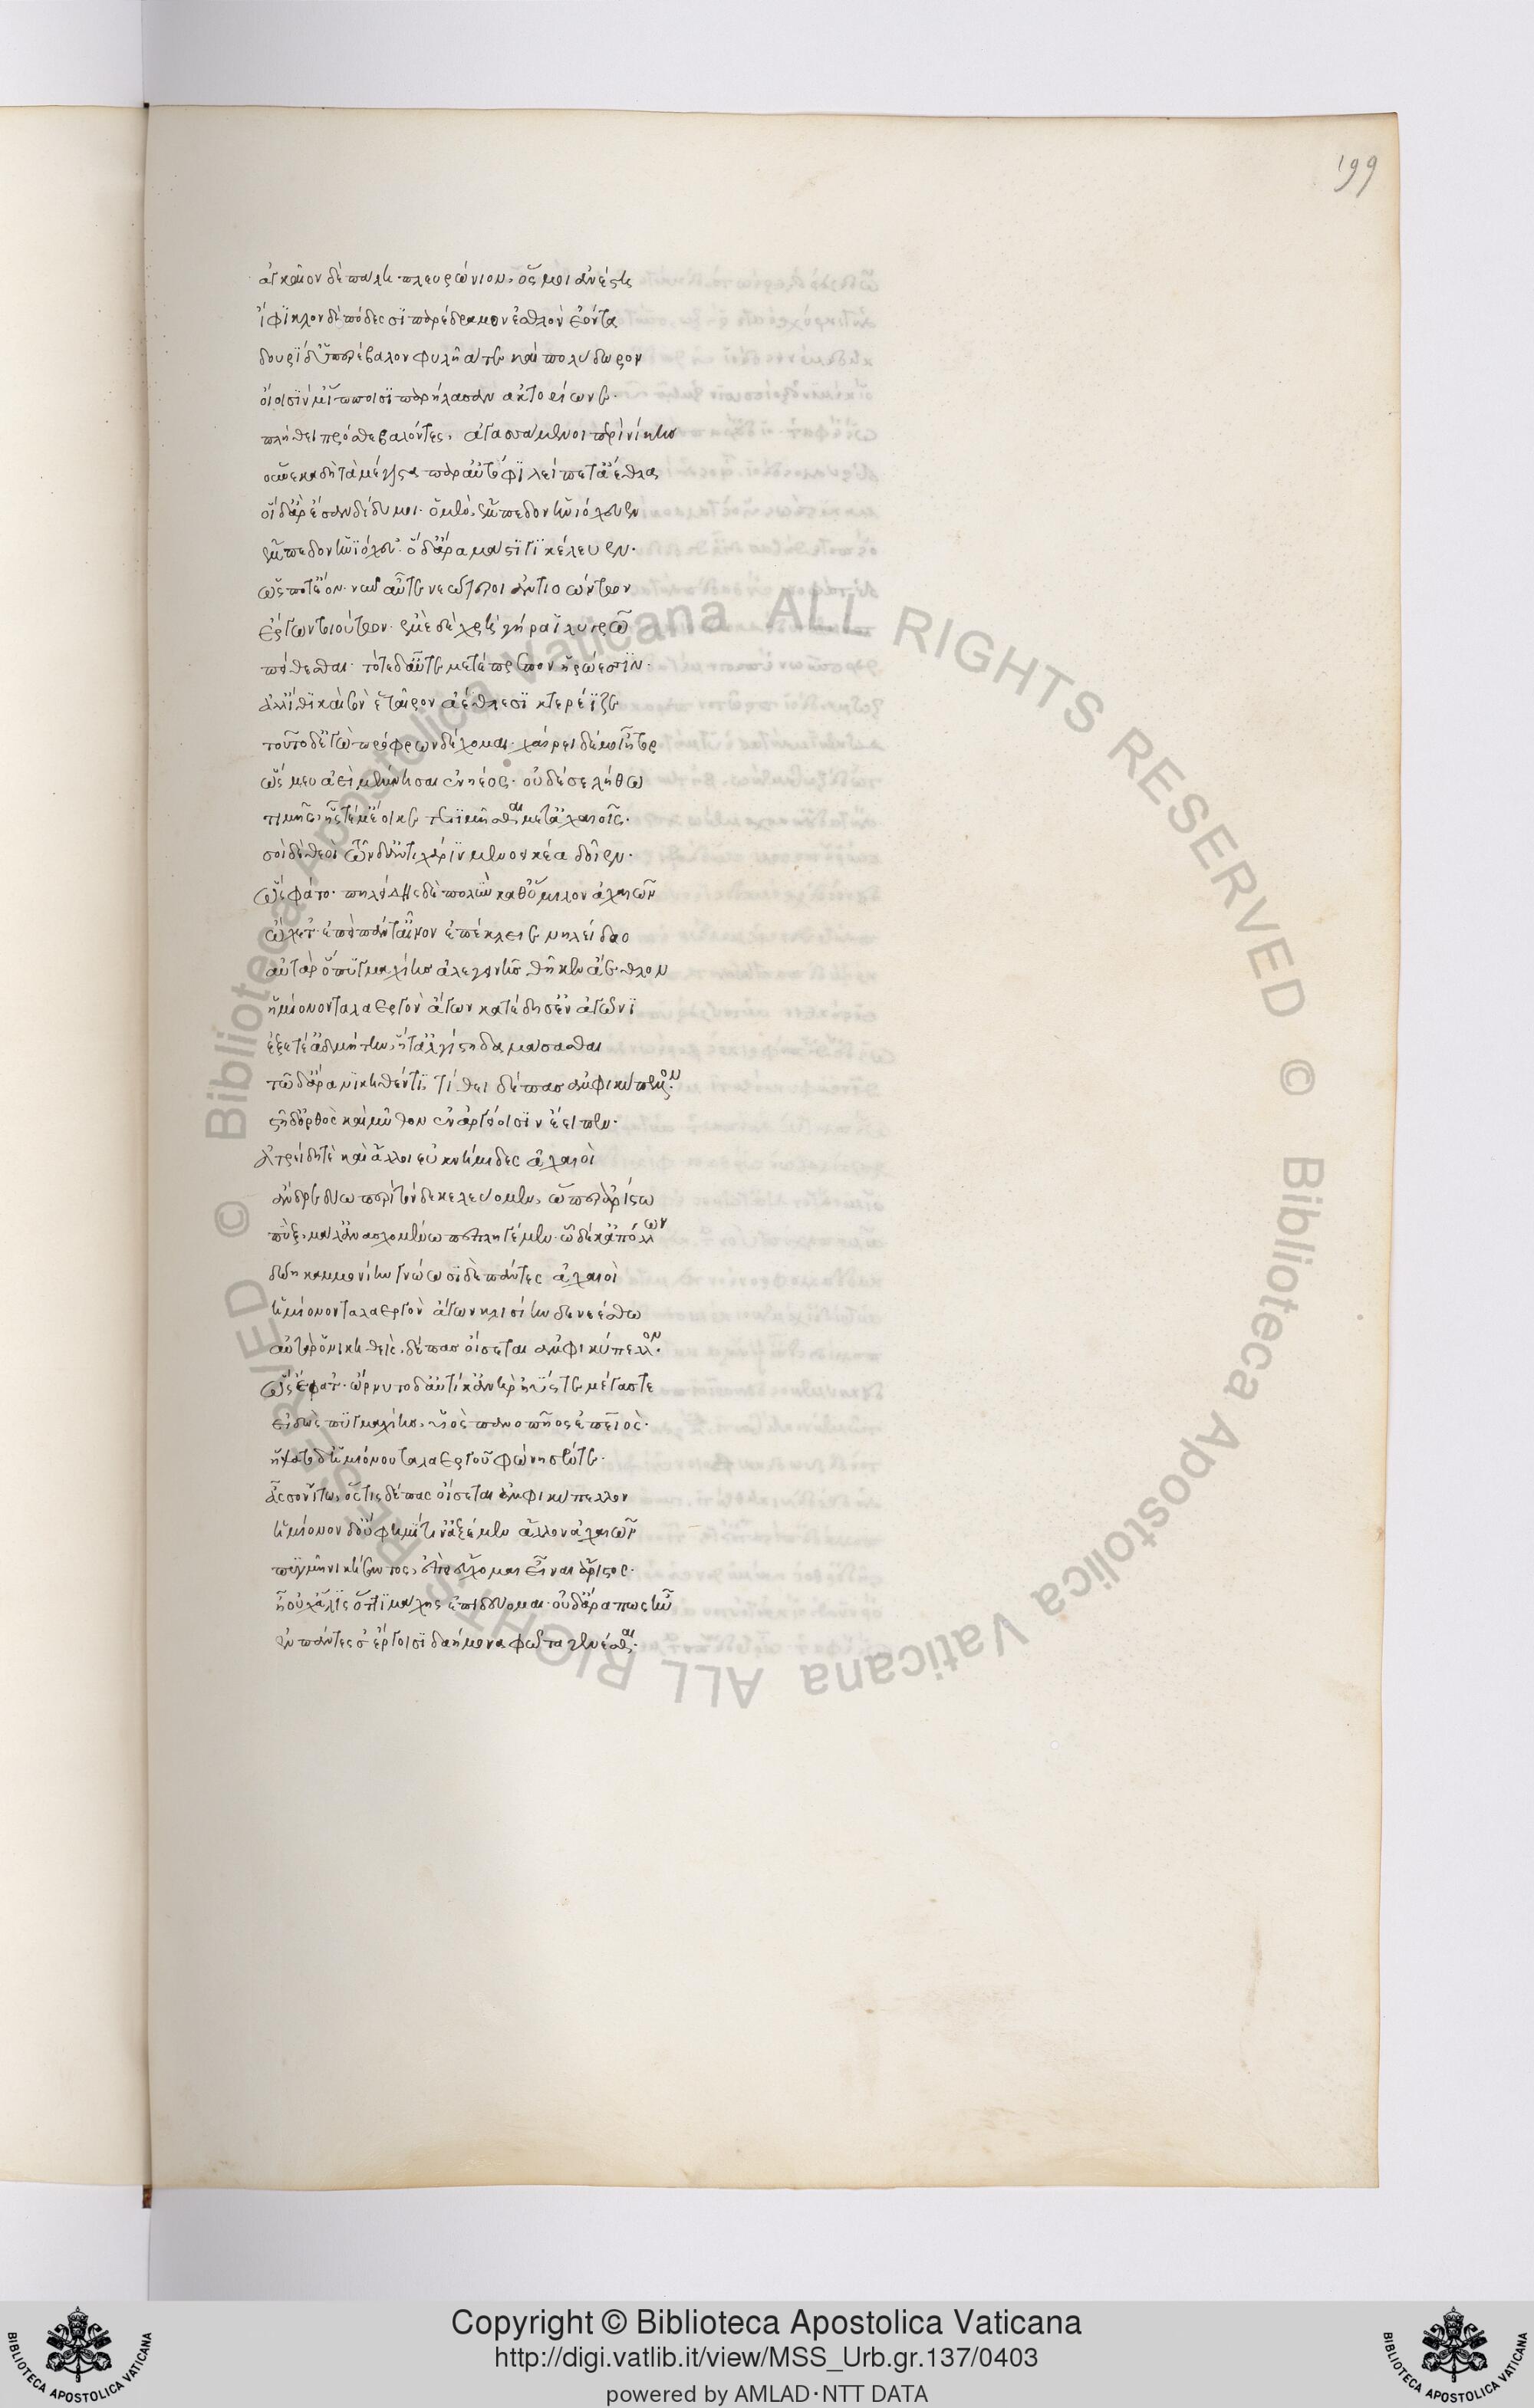 199
ἀγκαῖον δὲ πάλη πλευρώνιον, ὅς μοι ἀνέστη
ἴφικλον δὲ πόδεσσι παρέδραμον ἐσθλὸν ἐόντα
δουρὶ δ' ὑπειρέβαλον φυλῆά τε καὶ πολύδωρον
οἴοισίν μ' ἵπποισι παρήλασαν ἀκτορίωνε.
πλήθει πρόσθε βαλόντες, ἀγασσάμενοι περὶ νίκης
οὕνεκα δὴ τὰ μέγιστα παρ' αὐτόφι λείπετ' ἄεθλα
οἱ δ' ἄρ' ἔσαν δίδυμοι. ὁ μὲν, ἔμπεδον ἡνιόχευεν
ἔμπεδον ἡνιόχευ'. ὁ δ' ἄρα μάστιγι κέλευεν.
ὥς ποτ' ἔον. νῦν αὖτε νεώτεροι ἀντιοώντων
ἔργων τοιούτων. ἐμὲ δὲ χρὴ γήραϊ λυγρῶ
πείθεσθαι. τότε δ' αὖτε μετέπρεπον ἡρώεσσιν.
ἀλλ' ἴθι καὶ σὸν ἑταῖρον ἀέθλοισι κτερέϊζε
τοῦτο δ' ἐγὼ πρόφρων δέχομαι. χαίρει δέ μοι ἦτορ
ὥς μευ ἀεὶ μέμνησαι ἐνηέος. οὐδέ σε λήθω
τιμῆς, ἧς τέ μ' ἔοικε τετιμῆσθαι μετ' ἀχαιοῖς.
σοὶ δὲ θεοὶ τῶνδ' ἀντὶ χάριν μενοεικέα δοῖεν.
ὣς φάτο. πηλείδης δὲ πολὺν καθ' ὅμιλον ἀχαιῶν
ὤχετ'. ἐπεὶ πάντ' αἶνον ἐπέκλυε νηλείδαο
αὐτὰρ ὁ πυγμαχίης ἀλεγεινῆς θῆκεν ἄεθλον
ἡμίονον ταλαεργὸν ἄγων κατέδησ' ἐν ἀγῶνι
ἑξετέ' ἀδμήτην, ἥτ' ἀλγίστη δαμάσασθαι
τῶ δ' ἄρα νικηθέντι, τίθει δέπας ἀμφικύπελλον.
στῆ δ' ὀρθὸς καὶ μῦθον ἐν ἀργείοισιν ἔειπεν.
ἀτρείδη τε καὶ ἄλλοι ἐυκνήμιδες ἀχαιοὶ
ἄνδρε δύω περὶ τῶνδε κελεύομεν, ὥπερ ἀρίστω
πὺξ, μάλ' ἀνασχομένω πεπληγέμεν. ὧ δέ κ' ἀπόλλων
δώη καμμονίην γνώωσι δὲ πάντες ἀχαιοὶ
ἡμίονον ταλαεργὸν ἄγων κλισίην δε νεέσθω
αὐτὰρ ὁ νικηθεὶς, δέπας οἴσεται ἀμφικύπελλον.
ὣς ἔφατ'. ὤρνυτο δ' αὐτίκ' ἀνὴρ ἠΰς τε μέγας τε
εἰδὼς πυγμαχίης, υἱὸς πανοπῆος ἐπειὸς.
ἥψατο δ' ἡμιόνου ταλαεργοῦ φώνησέν τε.
ἆσσον ἴτω, ὅς τις δέπας οἴσεται ἀμφικύπελλον
ἡμίονον δ' οὔ φημί τιν' ἀξέμεν ἄλλον ἀχαιῶν
πυγμῆ νικήσαντ', ἐπεὶ εὔχομαι εἶναι ἄριστος.
ἦ οὐχ ἅλις ὅττι μάχης ἐπιδεύομαι. οὐδ' ἄρα πως ἦν
ἐν πάντεσσ' ἔργοισι δαήμονα φῶτα γενέσθαι.
Copyright © Biblioteca Apostolica Vaticana
http://digi.vatlib.it/view/MSS_Urb.gr.137/0403
powered by AMLAD·NTT DATA